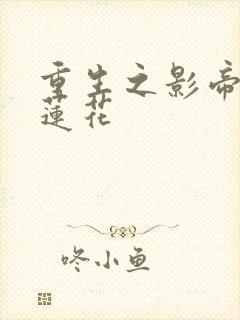 重生之影帝
蓮花
咚小鱼